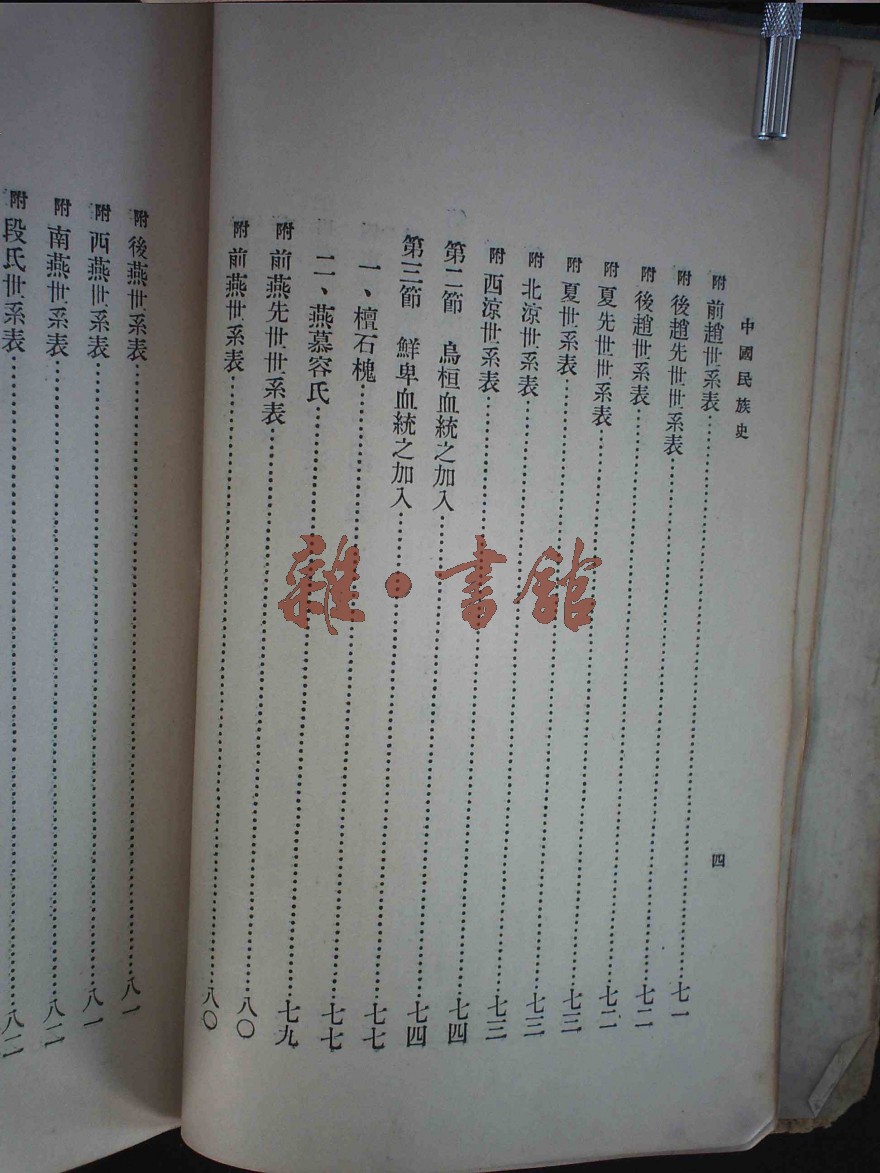 中國民族史
四
附 前趙世系表……七一
附 後趙先世世系表……七二
附 後趙世系表……七二
附 夏先世世系表……七三
附 夏世系表……七三
附 北涼世系表……七三
附 西涼世系表……七四
第二節 烏桓血統之加入……七四
第三節 鮮卑血統之加入……七七
一、檀石槐……七七
二、燕慕容氏……七九
附 前燕先世世系表……八〇
附 前燕世系表……八〇
附 後燕世系表……八一
附 西燕世系表……八一
附 南燕世系表……八二
附 段氏世系表……八二
雜·書館